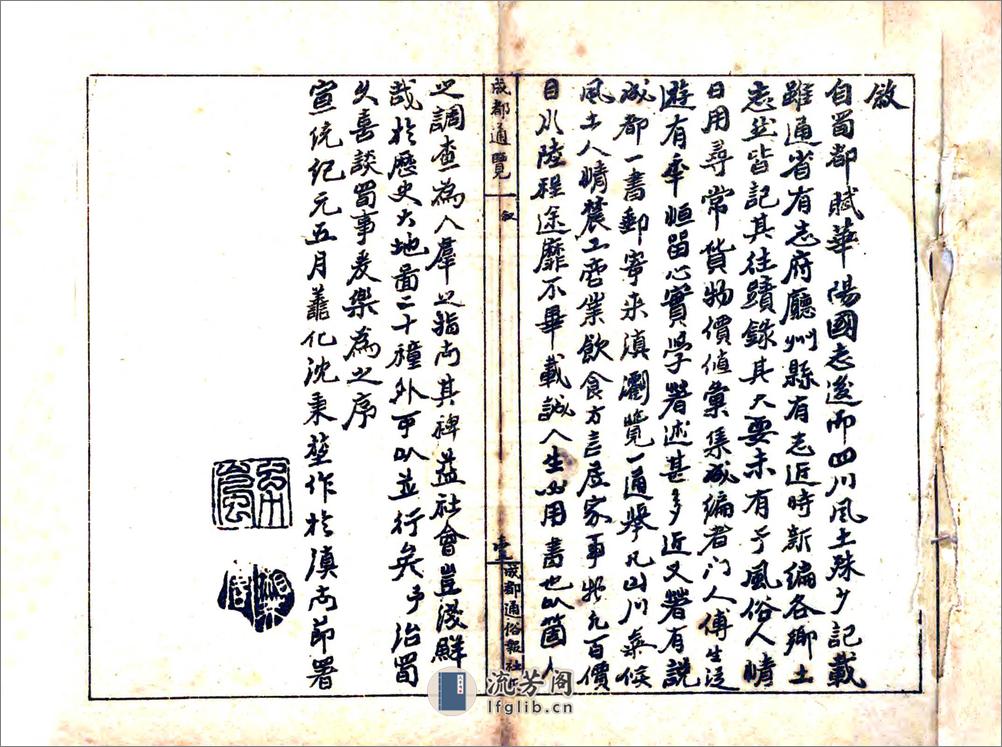 敘
自蜀都賦華陽國志後而四川風土殊少記載
雖通省有志府廳州縣有志近時新編各鄉土
志然皆記其往蹟錄其大要未有於風俗人情
日用尋常貨物價值彙集成編者門人傅生
遊有年恒留心實學著述甚多近又著有說
成都一書郵寄來滇瀏覽一通舉凡山川氣候
風土人情農工商業飲食方言居家事物凡百價
目水陸程途靡不畢載誠人生必用書也以箇人
成都通覽
敘
壹
成都通俗報社
之調查為人羣之指南其裨益社會豈淺鮮
哉於歷史大地面二十種外可以並行矣予治蜀
久喜談蜀事爰樂為之序
宣統紀元五月蕭化沈秉堃作於滇南節署
流芳阁
lfglib.cn